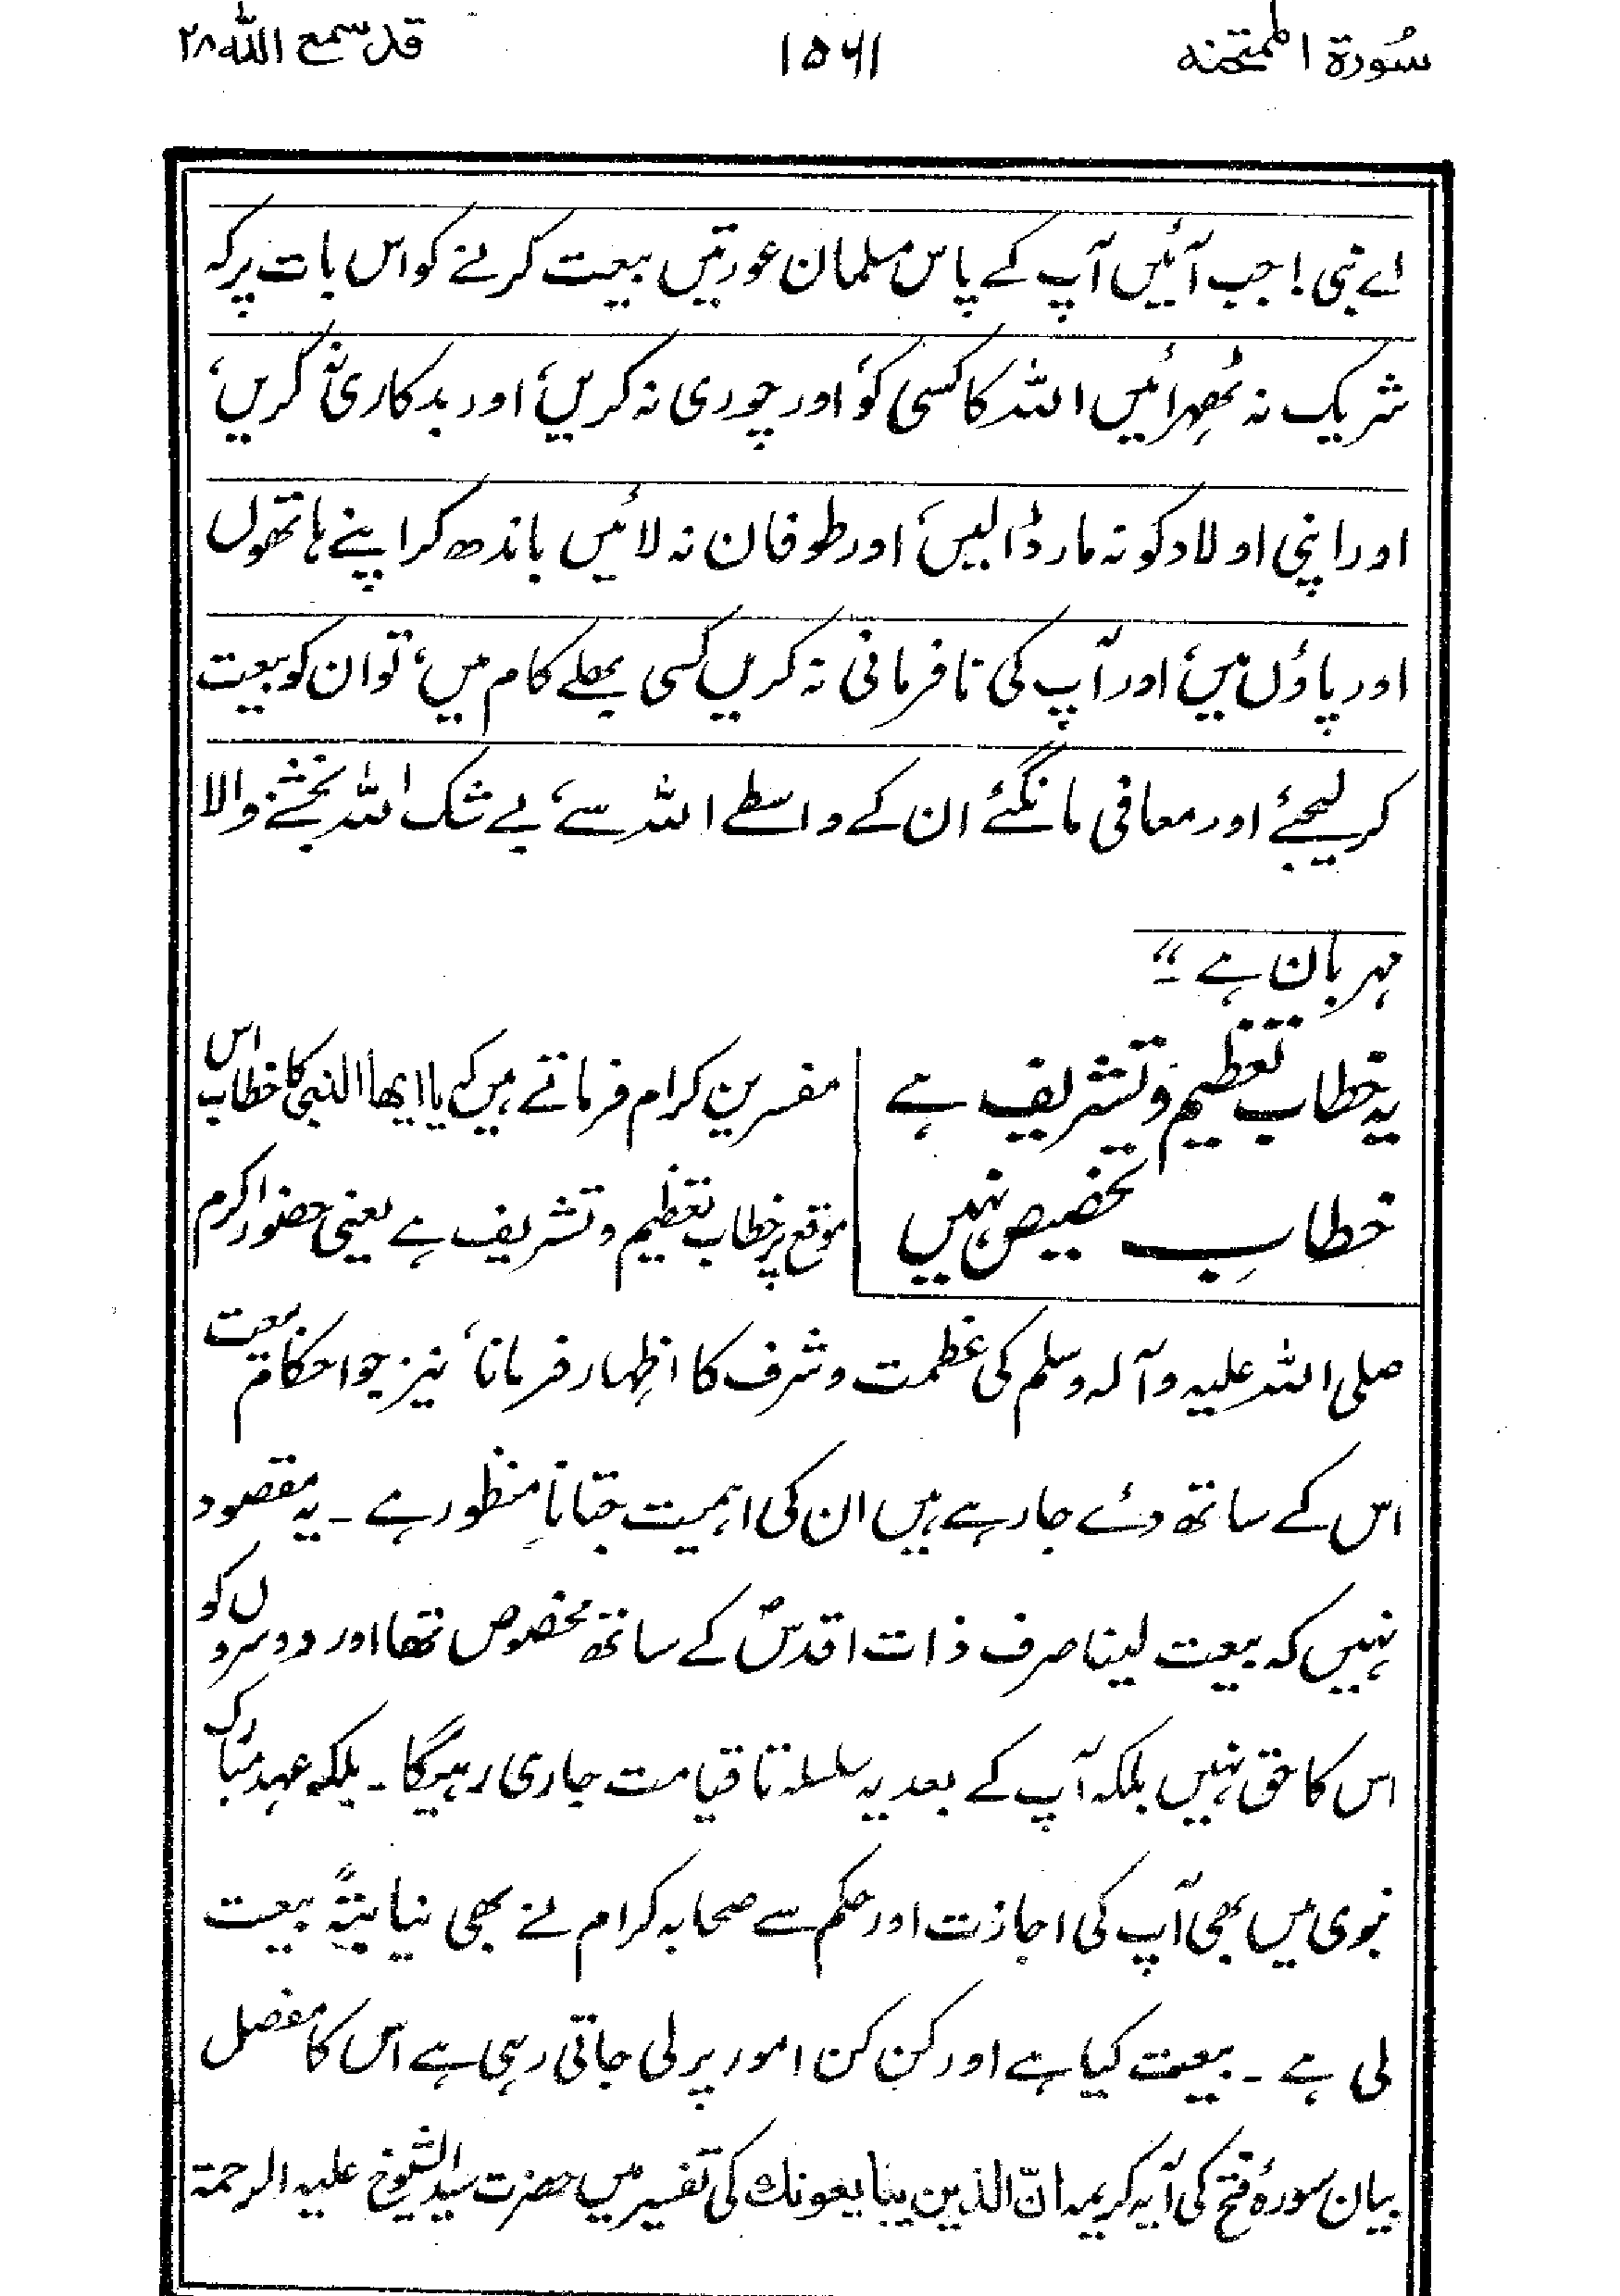 سُورة الممتحنہ ۱۵۶۱ قد سمع اللہ ۲۸
اے نبی! جب آئیں آپ کے پاس مسلمان عورتیں بیعت کرنے کو اس بات پر کہ
شریک نہ ٹھہرائیں اللہ کا کسی کو، اور چوری نہ کریں، اور بدکاری نہ کریں،
اور اپنی اولاد کو نہ مار ڈالیں، اور طوفان نہ لائیں باندھ کر اپنے ہاتھوں
اور پاؤں میں، اور آپ کی نافرمانی نہ کریں کسی بھلے کام میں، تو ان کو بیعت
کر لیجئے اور معافی مانگئے ان کے واسطے اللہ سے، بے شک اللہ بخشنے والا
مہربان ہے ۔“
یہ خطاب تعظیم و تشریف ہے
خطابِ تخصیص نہیں
مفسرین کرام فرماتے ہیں کہ یا ایھا النبی کا خطاب اس
موقع پر خطاب تعظیم و تشریف ہے یعنی حضور اکرم
صلی اللہ علیہ وآلہ وسلم کی عظمت و شرف کا اظہار فرمانا، نیز جو احکام بیعت
اس کے ساتھ دئے جارہے ہیں ان کی اہمیت جتانا منظور ہے ۔ یہ مقصود
نہیں کہ بیعت لینا صرف ذات اقدسؐ کے ساتھ مخصوص تھا اور دوسروں کو
اس کا حق نہیں بلکہ آپ کے بعد یہ سلسلہ تا قیامت جاری رہیگا ۔ بلکہ عہد مبارک
نبوی میں بھی آپ کی اجازت اور حکم سے صحابہ کرام نے بھی نیابتہً بیعت
لی ہے ۔ بیعت کیا ہے اور کن کن امور پر لی جاتی رہی ہے اس کا مفصل
بیان سورۂ فتح کی آیہ کریمہ انّ الذین یبایعونك کی تفسیر میں حضرت سید الشیوخ علیہ الرحمۃ